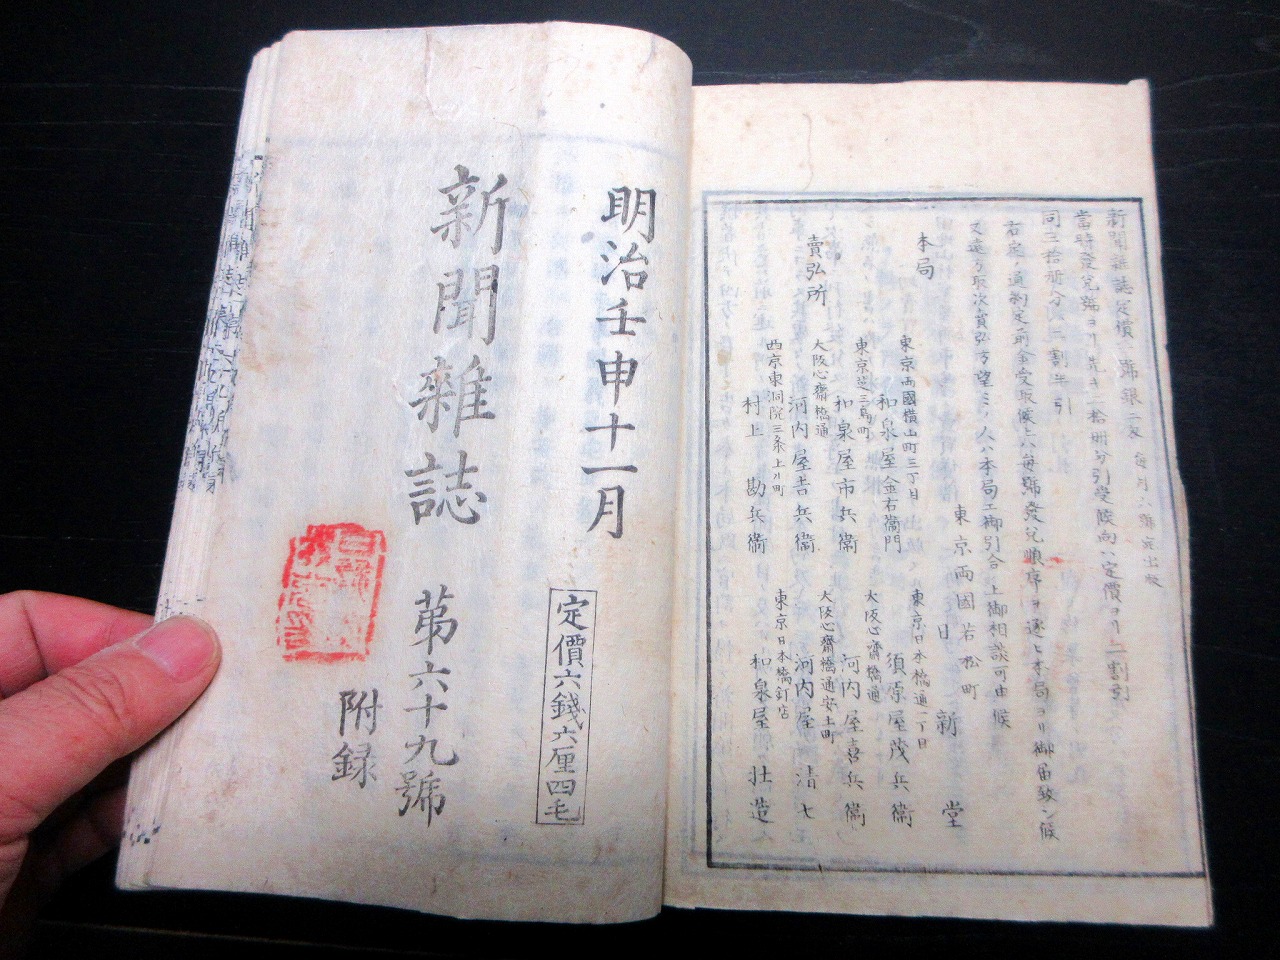 新聞雜誌定價一號銀二匁 每月六號宛出版
當時發兌號ヨリ先キ二拾冊分引受候向ハ定價ヨリ二割引
同三拾冊分ハ二割半引
右之通約定前金受取候上ハ每號發兌順序ヲ逐ヒ本局ヨリ御届致シ候
又遠方取次賣弘方望ミノ人ハ本局エ御引合ノ上御相談可申候
東京両國若松町
本局 日新堂
賣弘所
東京両國橫山町三丁目
和泉屋金右衞門
東京芝三島町
和泉屋市兵衞
大阪心齋橋通
河内屋吉兵衞
西京東洞院三条上ル町
村上勘兵衞
東京日本橋通一丁目
須原屋茂兵衞
大阪心齋橋通
河内屋喜兵衞
大阪心齋橋通安土町
河内屋清七
東京日本橋釘店
和泉屋壯造
明治壬申十一月
定價六錢六厘四毛
新聞雜誌
第六十九號
附録